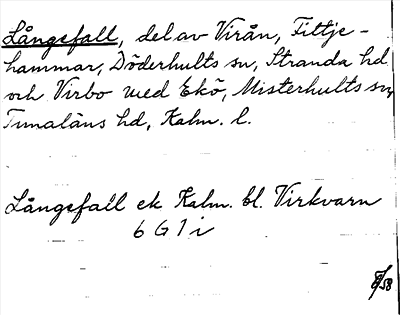 Långsfall, del av Virån, Fittje-
hammar, Döderhults sn, Stranda hd
och Virbo med Ekö, Misterhults sn,
Tunaläns hd, Kalm. l.
Långsfall ek Kalm. bl. Virkvarn
6 G 1 i
8/58